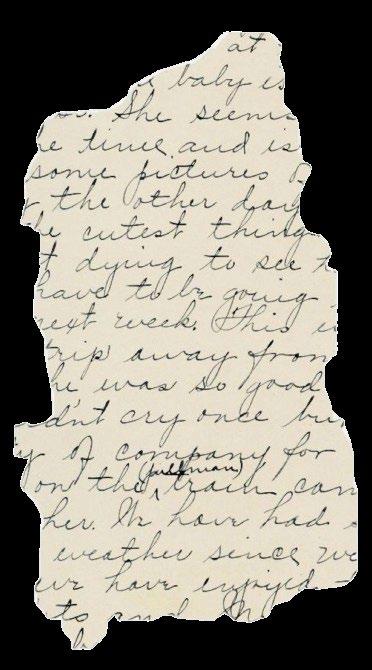 at
e baby is
s. She seems
he time and is
some pictures o
t the other day
he cutest thing
t dying to see t
have to be going
next week. This i
trip away from
he was so good
dn't cry once bu
y of company for
(pullman)
on the ^ train cam
her. We have had
weather since we
we have enjoyed t
ts and